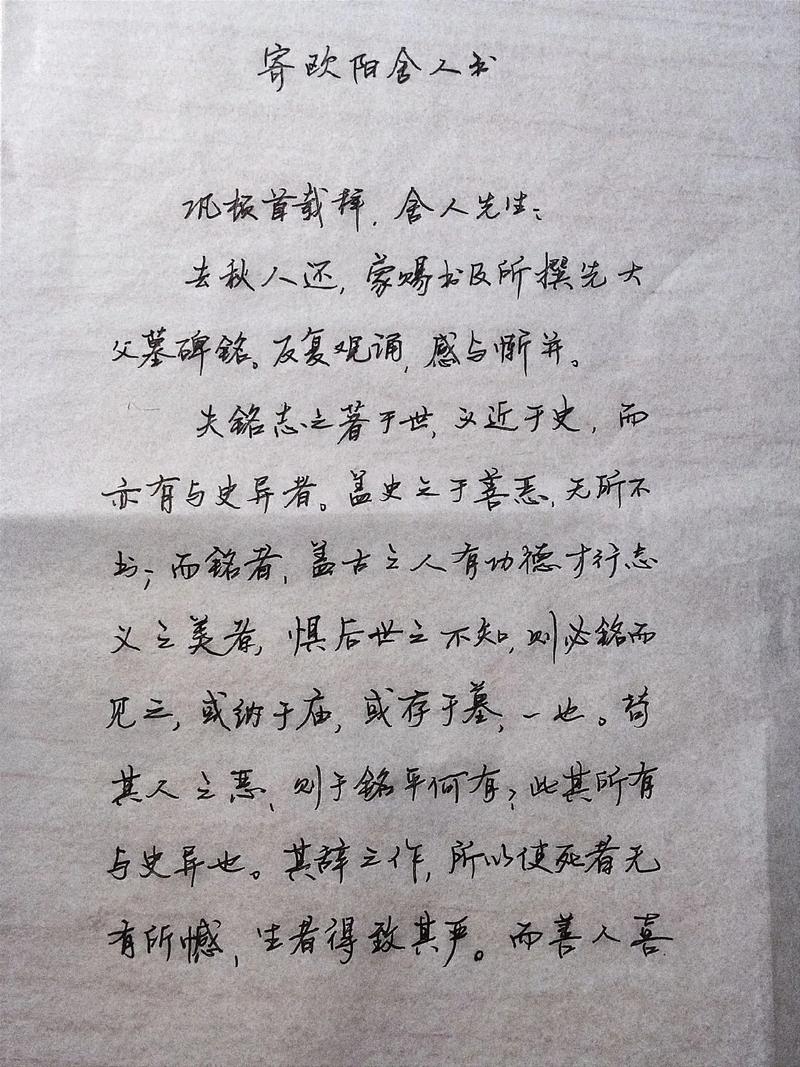 寄欧阳舍人书
巩顿首载拜，舍人先生：
去秋人还，蒙赐书及所撰先大
父墓碑銘。反复观诵，感与惭并。
夫銘志之著于世，义近于史，而
亦有与史异者。盖史之于善恶，无所不
书；而銘者，盖古之人有功德才行志
义之美者，惧后世之不知，则必銘而
见之，或纳于庙，或存于墓，一也。苟
其人之恶，则于銘乎何有？此其所有
与史异也。其辞之作，所以使死者无
有所憾，生者得致其严。而善人喜